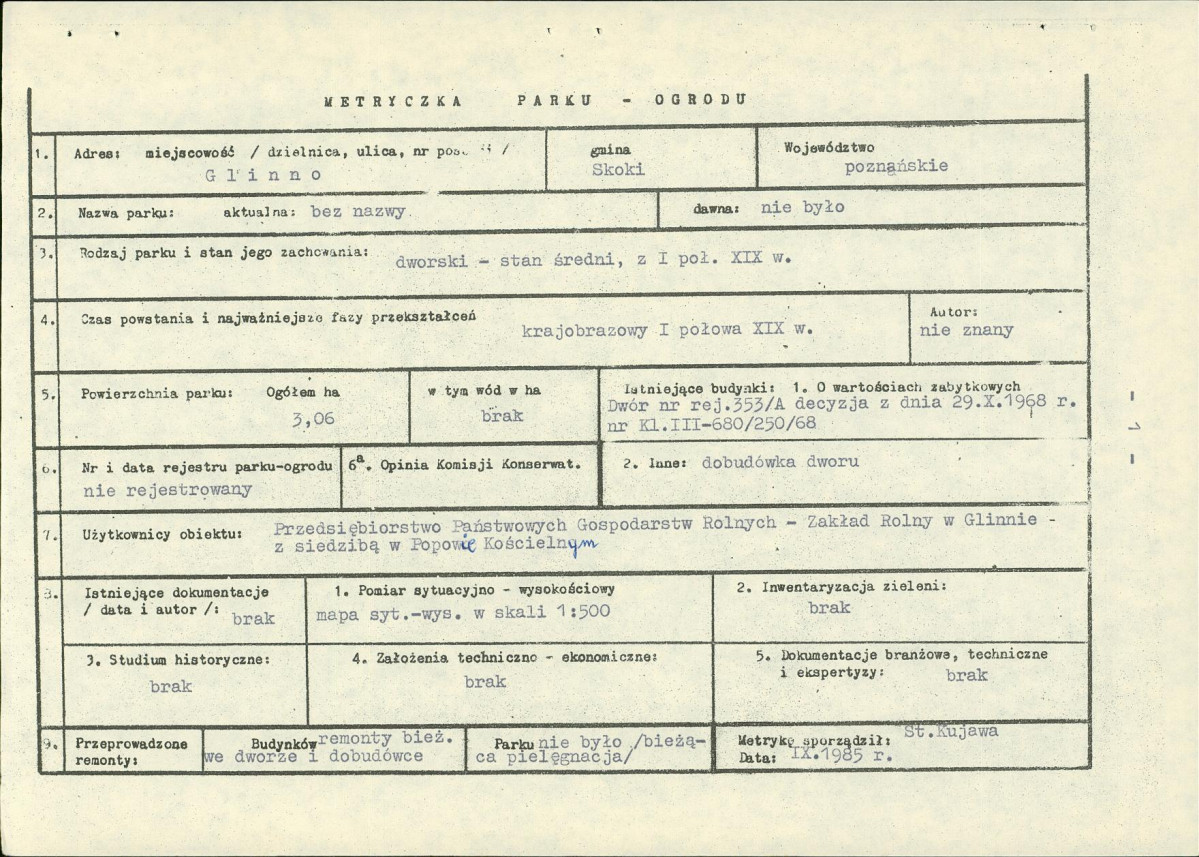 METRYCZKA PARKU - OGRODU
1. Adres: miejscowość / dzielnica, ulica, nr /
Glinno
gmina
Skoki
Województwo
poznańskie
2. Nazwa parku: aktualna: bez nazwy.
dawna: nie było
3. Rodzaj parku i stan jego zachowania: dworski - stan średni, z I poł. XIX w.
4. Czas powstania i najważniejsze fazy przekształceń
krajobrazowy I połowa XIX w.
Autor:
nie znany
5. Powierzchnia parku: Ogółem ha
3,06
w tym wód w ha
brak
Istniejące budynki: 1. O wartościach zabytkowych
Dwór nr rej.353/A decyzja z dnia 29.X.1968 r.
nr Kl.III-680/250/68
6. Nr i data rejestru parku-ogrodu
nie rejestrowany
6a. Opinia Komisji Konserwat.
2. Inne: dobudówka dworu
7. Użytkownicy obiektu: Przedsiębiorstwo Państwowych Gospodarstw Rolnych - Zakład Rolny w Glinnie -
z siedzibą w Popowie Kościelnym
8. Istniejące dokumentacje
/ data i autor /: brak
1. Pomiar sytuacyjno - wysokościowy
mapa syt.-wys. w skali 1:500
2. Inwentaryzacja zieleni:
brak
3. Studium historyczne:
brak
4. Założenia techniczno - ekonomiczne:
brak
5. Dokumentacje branżowe, techniczne
i ekspertyzy: brak
9. Przeprowadzone
remonty:
Budynków remonty bież.
we dworze i dobudówce
Parku nie było /bieżą-
ca pielęgnacja/
Metrykę sporządził: St.Kujawa
Data: IX.1985 r.
- 1 -